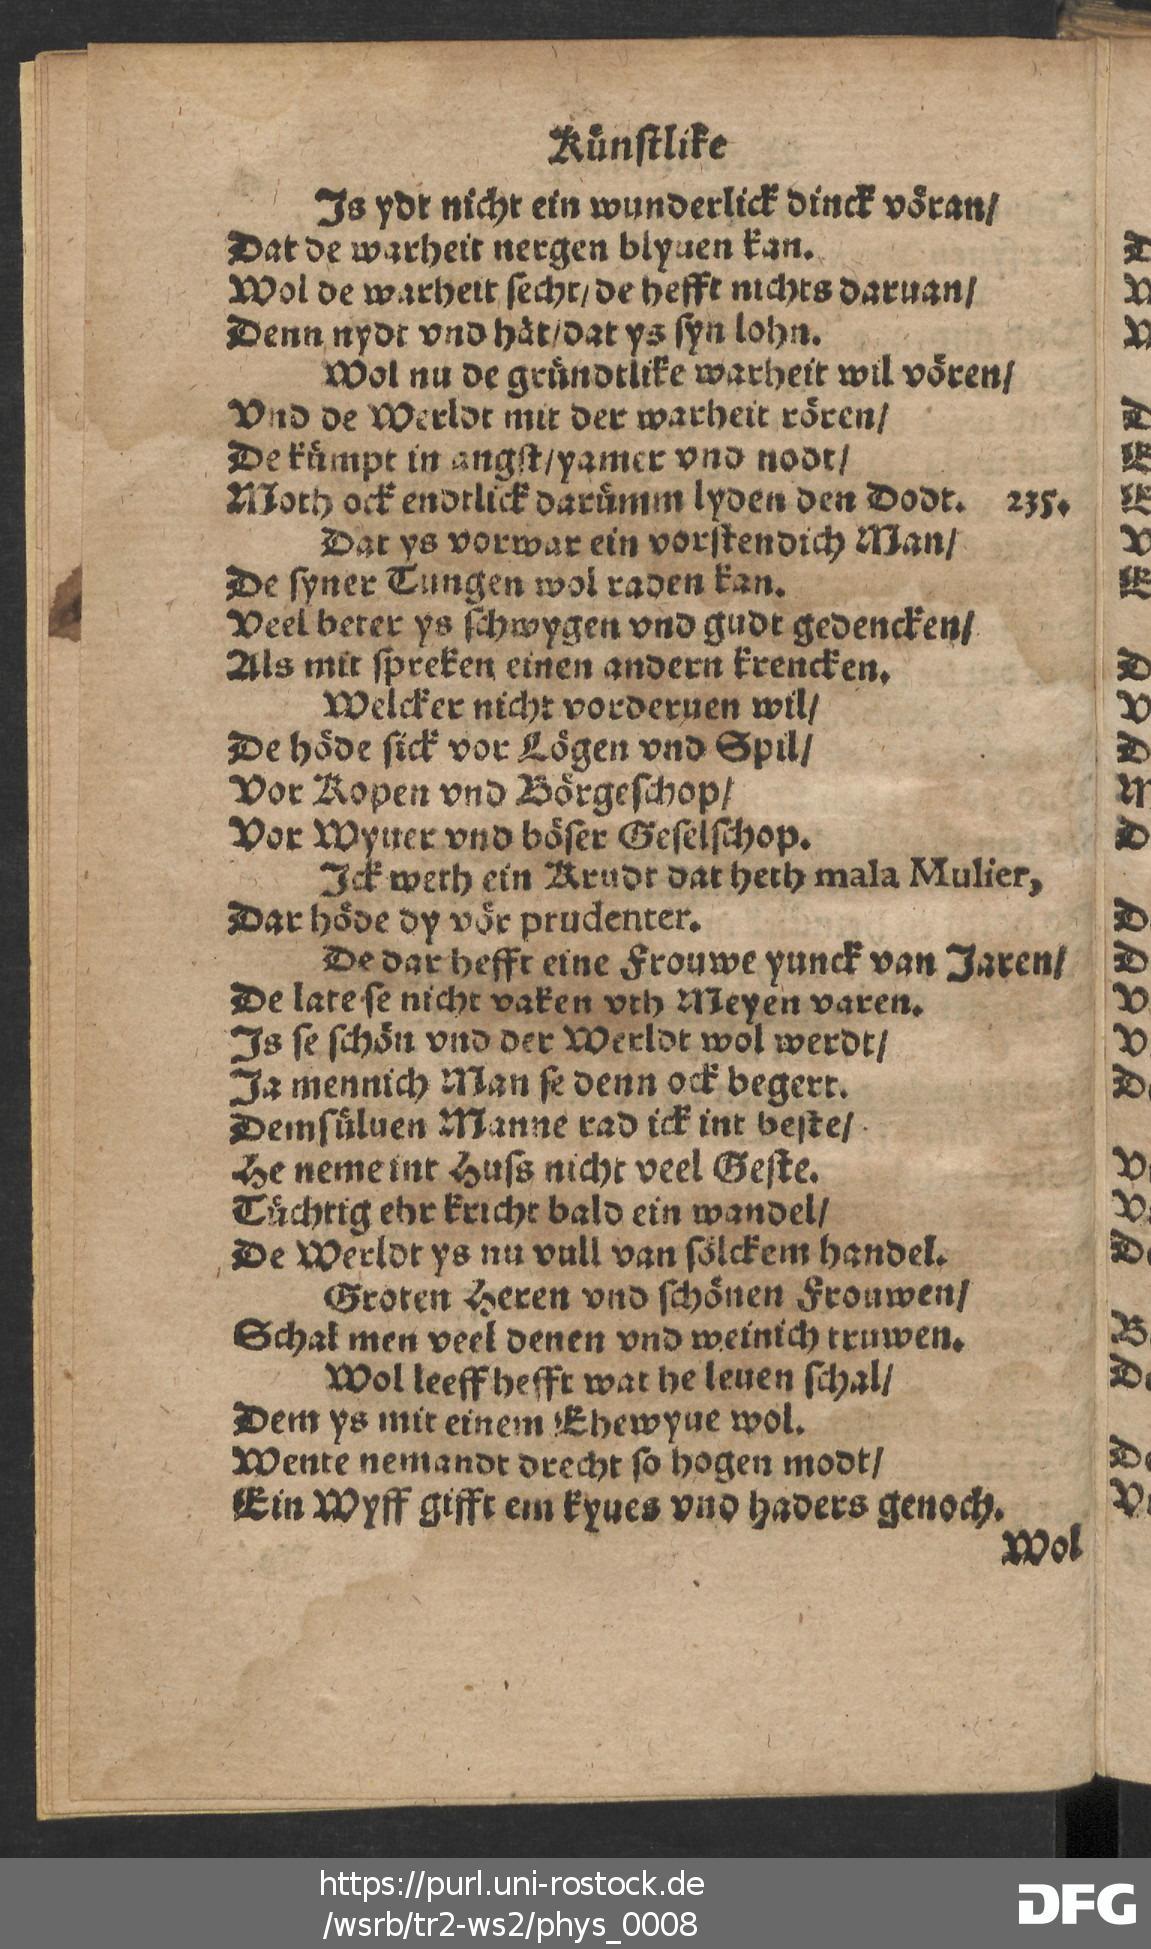 Kuͤnſtlike
Js ydt nicht ein wunderlick dinck voͤran/
Dat de warheit nergen blyuen kan.
Wol de warheit ſecht/ de hefft nichts daruan/
Denn nydt vnd haͤt/ dat ys ſyn lohn.
Wol nu de gruͤndtlike warheit wil voͤren/
Vnd de Werldt mit der warheit roͤren/
De kuͤmpt in angſt/ yamer vnd nodt/
Moth ock endtlick daruͤmm lyden den Dodt. 235.
Dat ys vorwar ein vorſtendich Man/
De ſyner Tungen wol raden kan.
Veel beter ys ſchwygen vnd gudt gedencken/
Als mit ſpreken einen andern krencken.
Welcker nicht vorderuen wil/
De hoͤde ſick vor Loͤgen vnd Spil/
Vor Kopen vnd Boͤrgeſchop/
Vor Wyuer vnd boͤſer Geſelſchop.
Jck weth ein Krudt dat heth mala Mulier,
Dar hoͤde dy voͤr prudenter.
De dar hefft eine Frouwe yunck van Jaren/
De late ſe nicht vaken vth Meyen varen.
Js ſe ſchoͤn vnd der Werldt wol werdt/
Ja mennich Man ſe denn ock begert.
Demſuͤluen Manne rad ick int beſte/
He neme int Huſs nicht veel Geſte.
Tuͤchtig ehr kricht bald ein wandel/
De Werldt ys nu vull van ſoͤlckem handel.
Groten Heren vnd ſchoͤnen Frouwen/
Schal men veel denen vnd weinich truwen.
Wol leeff hefft wat he leuen ſchal/
Dem ys mit einem Ehewyue wol.
Wente nemandt drecht ſo hogen modt/
Ein Wyff gifft em kyues vnd haders genoch.
Wol
https://purl.uni-rostock.de
/wsrb/tr2-ws2/phys_0008
DFG